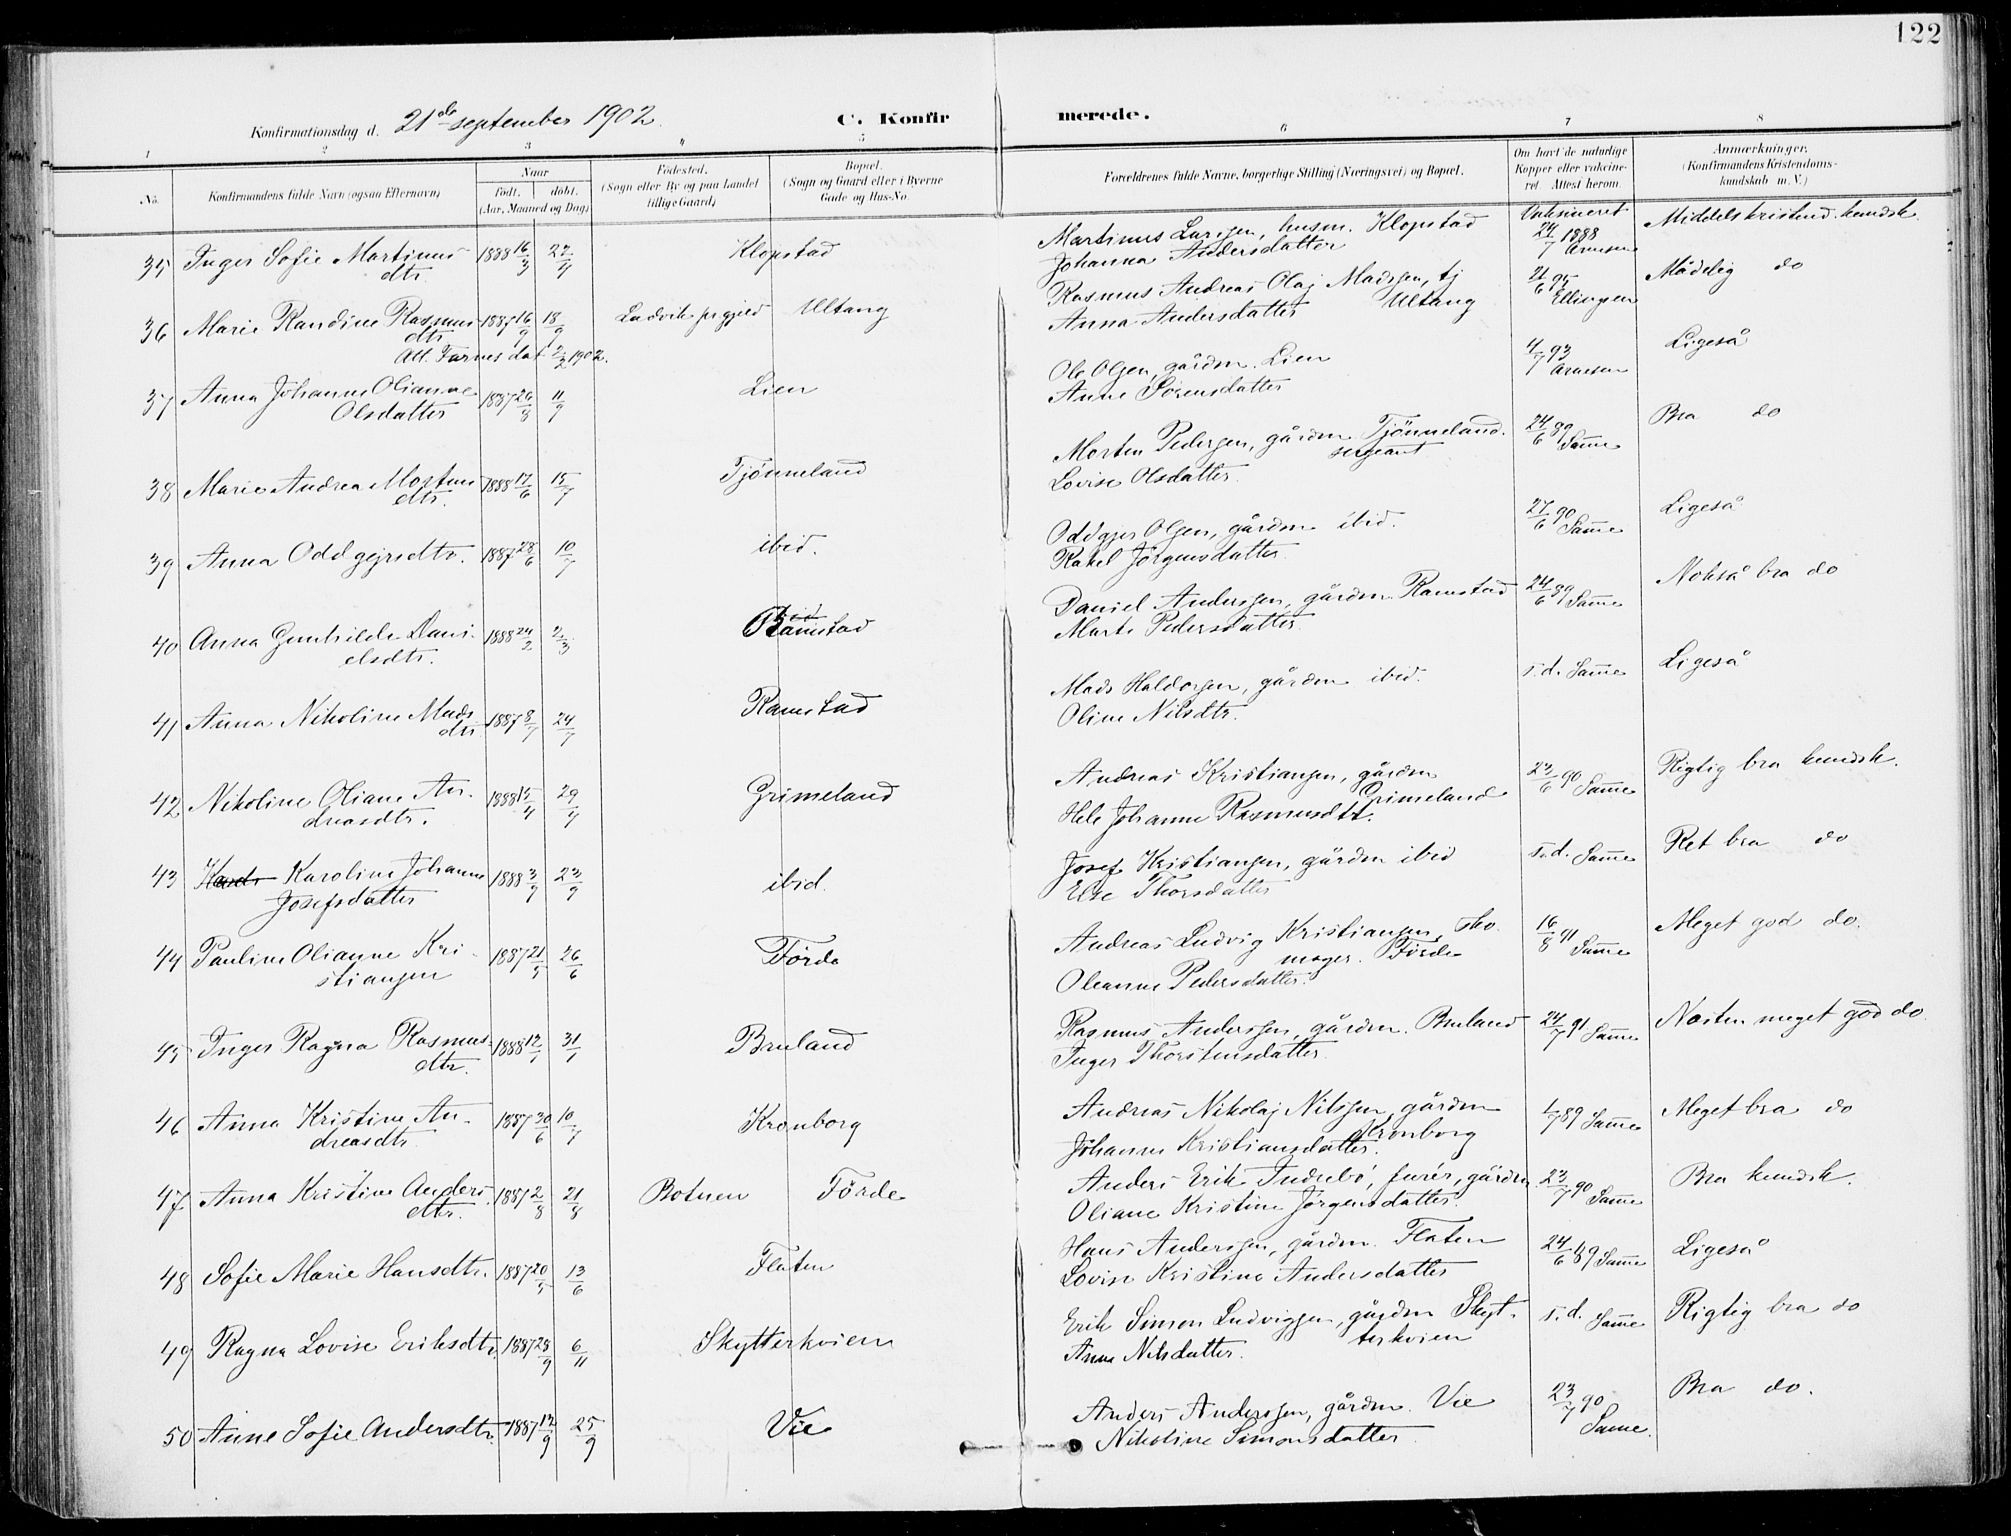 122
Konfirmationsdag d. 21de september 1902.
C. Konfirmerede.
1 2 3 4 5 6 7 8
No.
Konfirmandens fulde Navn (ogsaa Efternavn)
Naar
født. døbt.
(Aar, Maaned og Dag)
Fødested.
(Sogn eller By og paa Landet
tillige Gaard)
Bopæl.
(Sogn og Gaard eller i Byerne
Gade og Hus-No.
Forældrenes fulde Navne, borgerlige Stilling (Næringsvei) og Bopæl.
Om havt de naturlige
Kopper eller vakcine-
ret. Attest herom.
Anmærkninger.
(Konfirmandens Kristendoms-
kundskab m. V.)
35 Inger Sofie Martinus- 1888 16/3 22/4 Klopstad
dtr.
Martinus Larsen, husm. Klopstad
Johanna Andersdatter
Vaksineret
24/7 1888
Arnesen
Middels kristend. kundsk.
36 Marie Randine Rasmus- 1887 16/9 18/9 Ladvik prgjeld Ultang
dtr
Att. Farnes dat 2/2 1902.
Rasmus Andreas Olaj Madssen, tj
Anna Andersdatter Ultang
21/6 95
Ellingsen
Mådelig do
37 Anna Johanne Olianne 1887 26/8 11/9 Lien
Olsdatter
Ole Olsen, gårdm. Lien
Anne Sørensdatter
4/7 93
Arnesen
Ligeså
38 Marie Andrea Mortens 1888 17/6 15/7 Tjønneland
dtr.
Morten Pedersen, gårdm. Tjønneland.
sergeant
Lovise Olsdatter.
24/6 89
Samme
Bra do
39 Anna Oddgejrsdtr. 1887 28/6 10/7 ibid.
Oddgjer Olsen, gårdm ibid.
Rakel Jørgensdatter.
27/6 90
Samme
Ligeså
40 Anna Gunhilde Dani- 1888 24/2 2/3 Ramstad
elsdtr.
Daniel Anderssen, gårdm. Ramstad
Marte Pedersdatter.
24/6 89
Samme
Nokså bra do
41 Anna Nikoline Mads 1887 8/7 24/7 Ramstad
dtr
Mads Haldorsen, gårdm ibid.
Oline Nilsdtr.
s.d. Samme
Ligeså
42 Nikoline Oliane An- 1888 15/4 29/4 Grimeland
dreasdtr.
Andreas Kristiansen, gårdm
Grimeland
Hele Johanne Rasmusdtr.
23/6 90 Samme
Rigtig bra kundsk.
43 Karoline Johanne 1888 3/9 23/9 ibid.
Josefsdatter
Josef Kristiansen, gårdm ibid
Else Thorsdatter
s.d. Samme
Ret bra do
44 Pauline Olianne Kri- 1887 21/5 26/6 Førde
stiansen
Andreas Ludvig Kristiansen, sko
mager. Førde
Oleanne Pedersdatter.
16/8 91
Samme
Meget god do.
45 Inger Ragna Rasmus- 1888 12/1 31/1 Bruland
dtr.
Rasmus Anderssen, gårdm. Bruland
Inger Thorstensdatter.
24/7 91 Samme
Næsten meget god do.
46 Anna Kristine An- 1887 30/6 10/7 Kronborg
dreasdtr.
Andreas Nikolaj Nilssen, gårdm
Kronborg
Johanne Kristiansdatter.
4/7 89 Samme
Meget bra do
47 Anna Kristine Anders- 1887 2/8 21/8 Botnen Førde
dtr.
Anders Erik Indrebø, furér, gårdm
Oliane Kristine Jørgensdatter.
23/7 90 Samme
Bra kundsk.
48 Sofie Marie Hansdtr. 1887 20/5 13/6 Flaten
Hans Anderssen, gårdm. Flaten
Lovise Kristine Andersdatter
24/6 89 Samme
Ligeså
49 Ragna Lovise Eriksdtr. 1887 28/9 6/11 Skytterkvien
Erik Simon Ludvigsen, gårdm Skyt-
terkvien
Anna Nilsdatter.
s.d. Samme
Rigtig bra do
50 Anne Sofie Andersdtr. 1887 12/9 25/9 Vie
Anders Anderssen, gårdm. Vie
Nikoline Simonsdatter.
23/7 90
Samme.
Bra do.